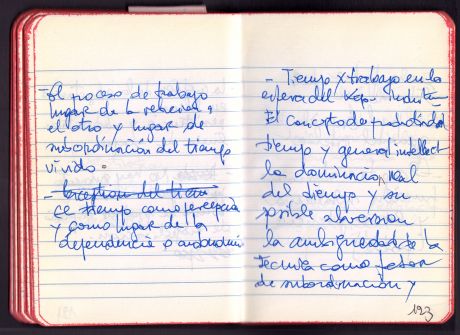 - El proceso de trabajo
lugar de la
el otro y lugar de
subordinación del tiempo
vivido.
- Perception del tiem
El tiempo como percepción
y como lugar de la
dependencia o autonomía
- Tiempo x trabajo en la
esfera del
El concepto de productividad
tiempo y general intellect
la dominación real
del tiempo y su
posible subversion
la ambiguedad de la
Tecnica como factor
de subordinación y
123